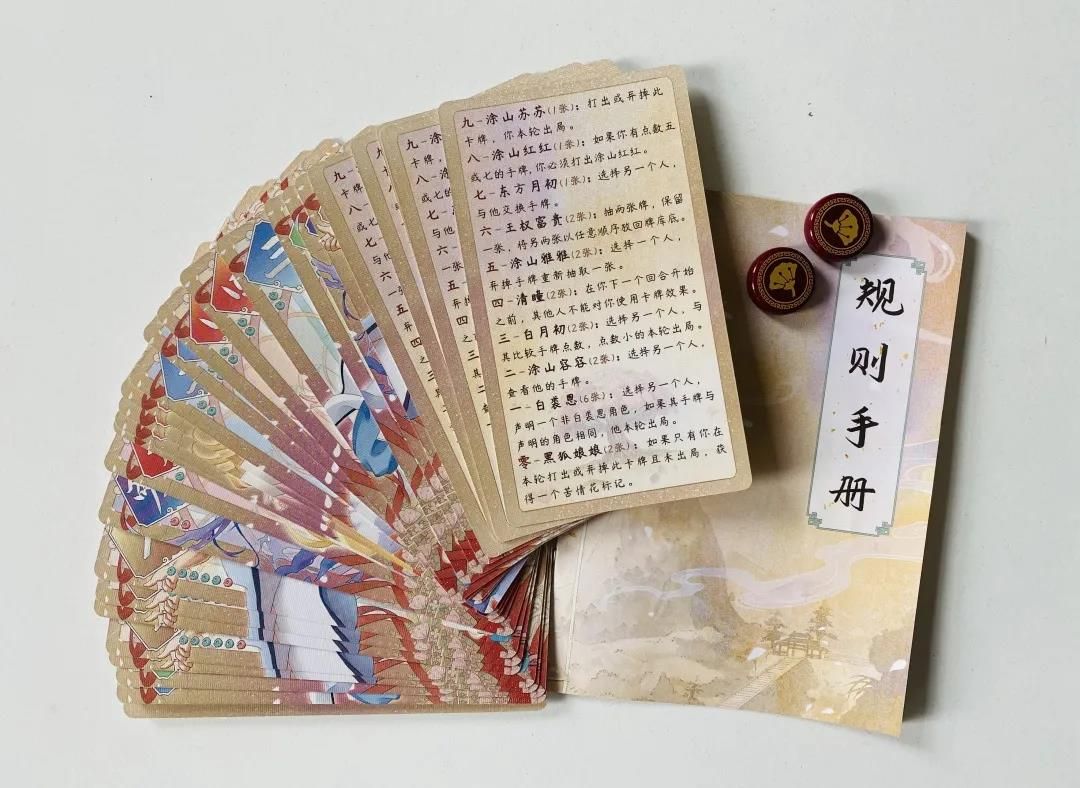 九-涂山苏苏(1张)：打出或弃掉此
卡牌，你本轮出局。
八-涂山红红(1张)：如果你有点数五
或七的手牌，你必须打出涂山红红。
七-东方月初(1张)：选择另一个人，
与他交换手牌。
六-王权富贵(2张)：抽两张牌，保留
一张，将另两张以任意顺序放回牌库底。
五-涂山雅雅(2张)：选择一个人，
弃掉手牌重新抽取一张。
四-清瞳(2张)：在你下一个回合开始
之前，其他人不能对你使用卡牌效果。
三-白月初(2张)：选择另一个人，与
其比较手牌点数，点数小的本轮出局。
二-涂山容容(2张)：选择另一个人，
查看他的手牌。
一-白裘恩(6张)：选择另一个人，
声明一个非白裘恩角色，如果其手牌与
声明的角色相同，他本轮出局。
零-黑狐娘娘(2张)：如果只有你在
本轮打出或弃掉此卡牌且未出局，获
得一个苦情花标记。
九-涂
卡牌
八-涂
或七的
七-
与他
六-
一张
五-
弃掉
四
之
三
其
二
查
九-
卡牌
八
或七
七-
与他
六-
一张
五
弃
四
之
规则手册